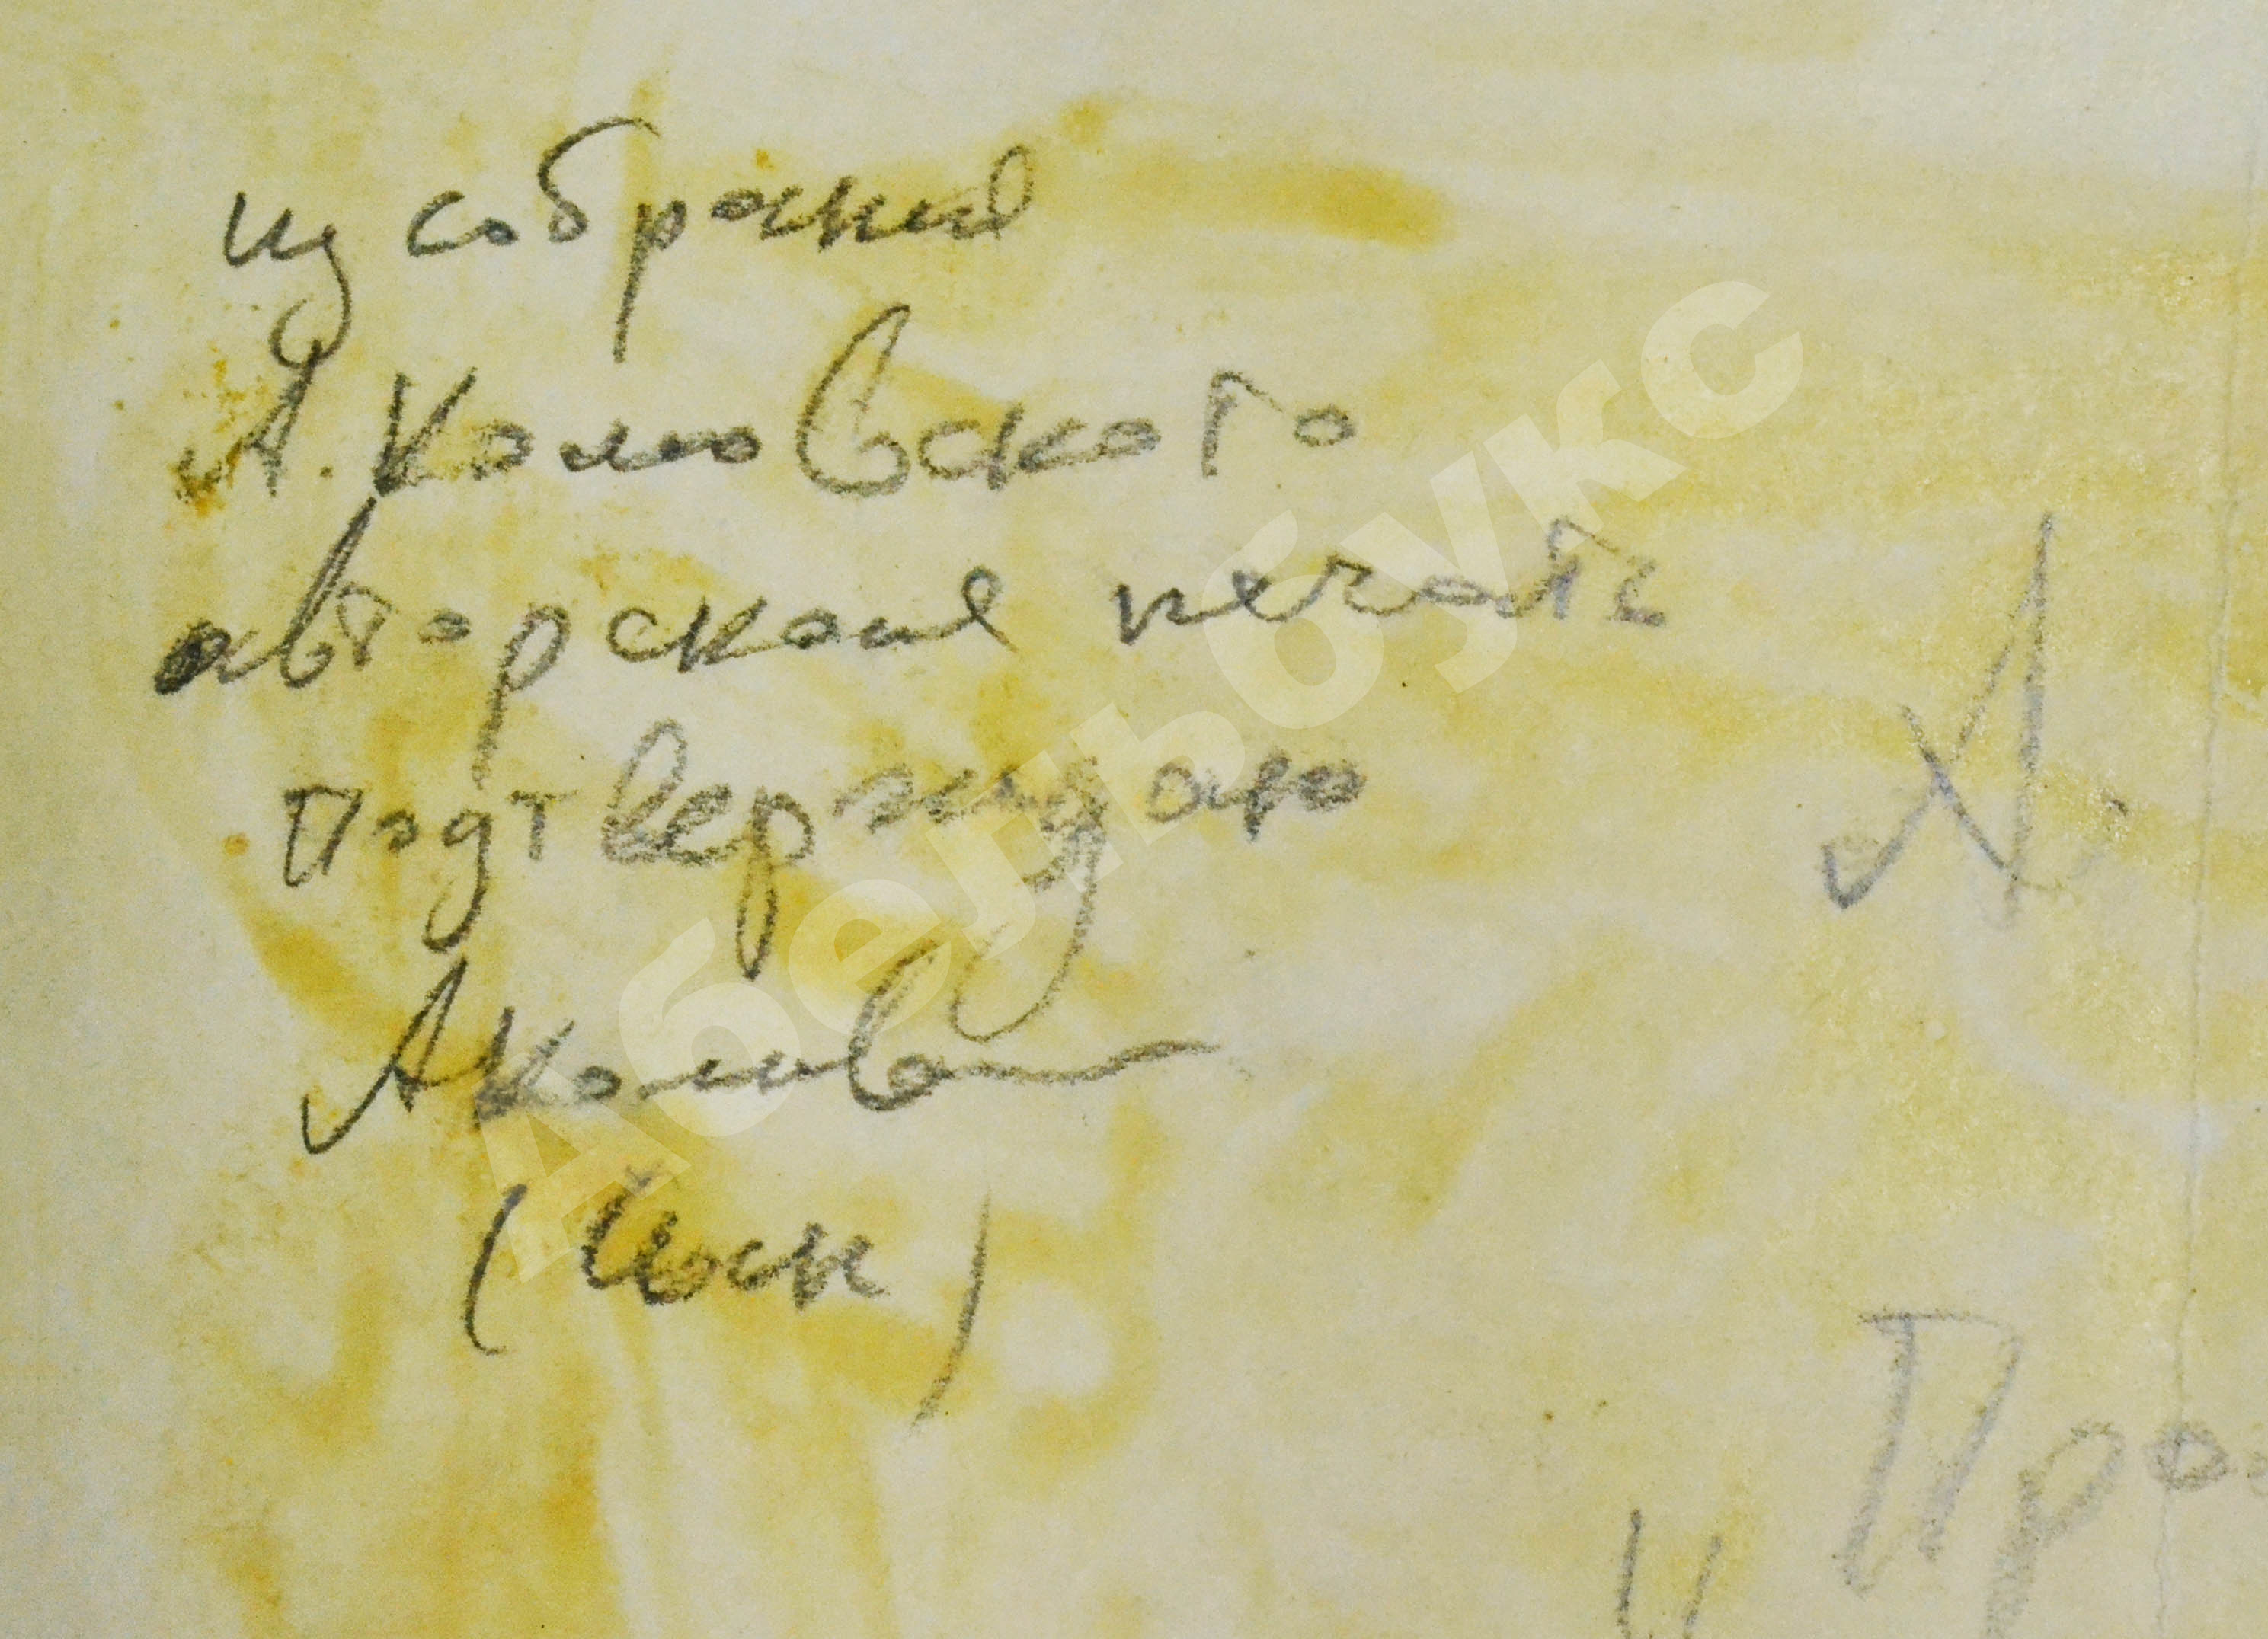 из собрания
А. Колювского
авторская печать
подтверждаю
(сын)
А.
Про
Абельбукс